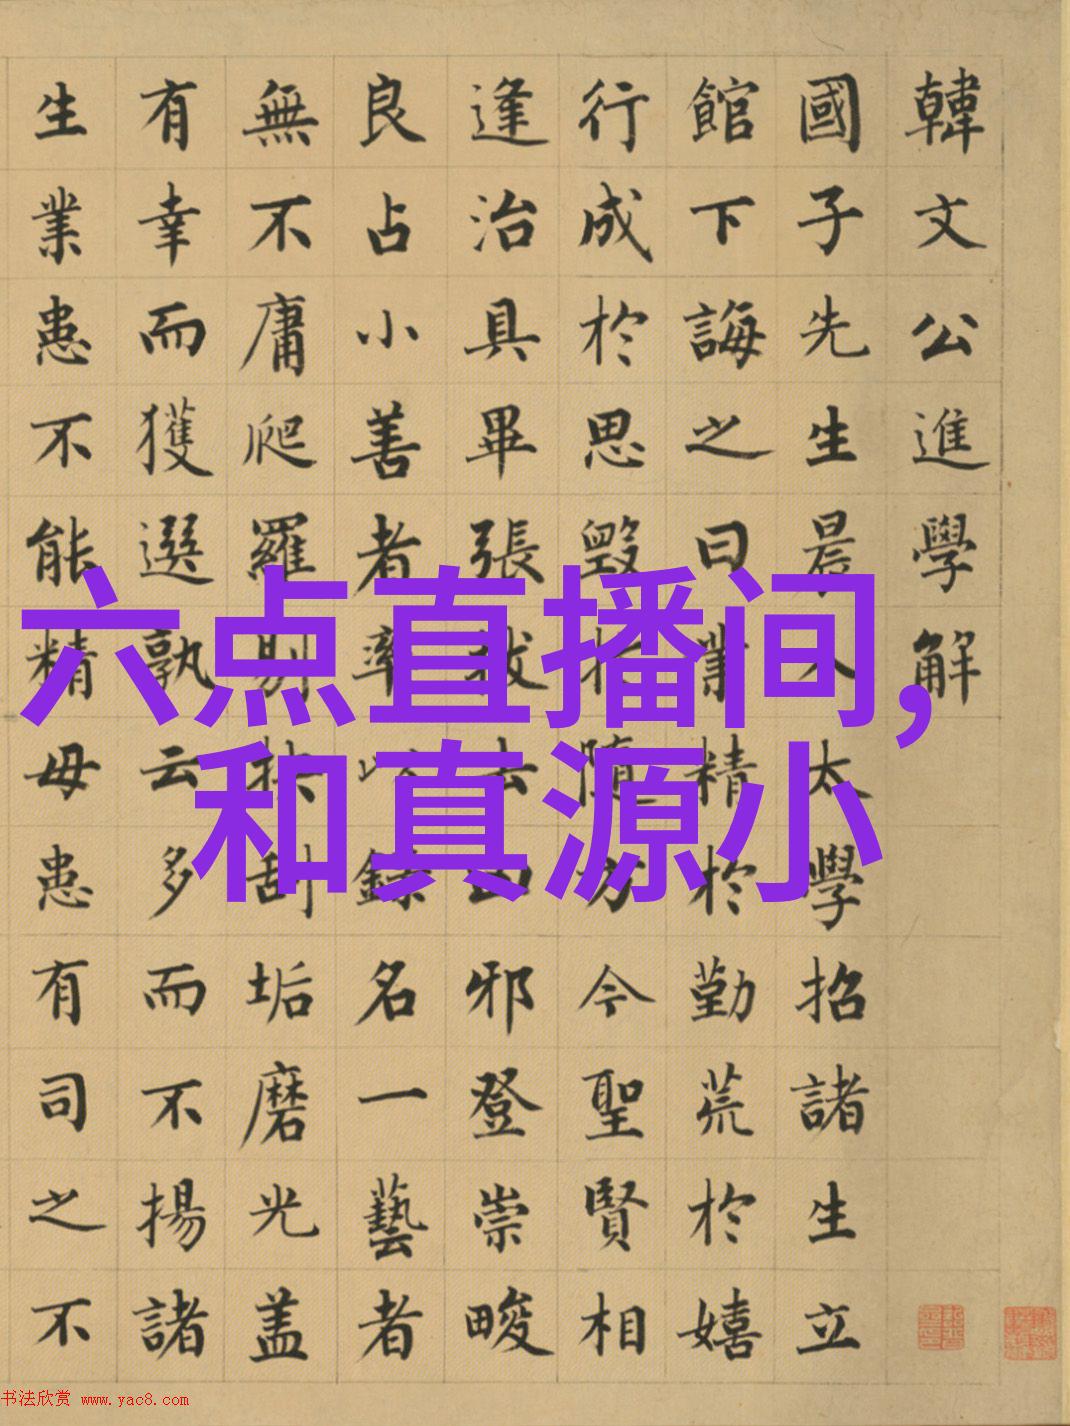 韓文公進學解
國子先生晨入太學招諸生立
館下誨之曰業精於勤荒於嬉
行成於思毀於隨方今聖賢相
逢治具畢張拔去凶邪登崇畯
良占小善者率以錄名一藝者
無不庸爬羅剔抉刮垢磨光盖
有幸而獲選孰云多而不揚諸
生業患不能精毋患有司之不
六点直播间，
和真源小
书法欣赏 www.yac8.com